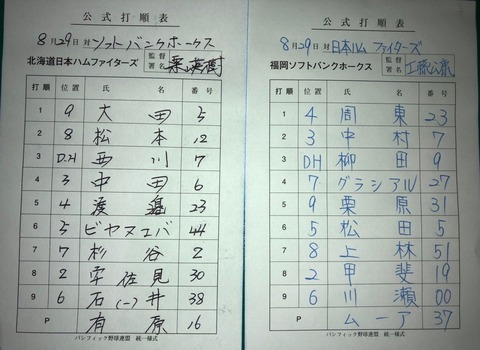 公式打順表
8月29日 対 ソフトバンクホークス
北海道日本ハムファイターズ 監督署名 栗山英樹
打順 氏 名 番号
1 9 大田 5
2 8 松本 12
3 D.H 西川 7
4 3 中田 6
5 4 渡邉 23
6 5 ビヤヌエバ 44
7 7 杉谷 2
8 2 宇佐見 30
9 6 石(一)井 38
P 有原 16
パシフィック野球連盟 統一様式
公式打順表
8月29日 対 日本ハムファイターズ
福岡ソフトバンクホークス 監督署名 工藤公康
打順 氏 名 番号
1 4 周東 23
2 3 中村 7
3 DH 柳田 9
4 7 グラシアル 27
5 9 栗原 31
6 5 松田 5
7 8 上林 51
8 2 甲斐 19
9 6 川瀬 00
P ムーア 37
パシフィック野球連盟 統一様式